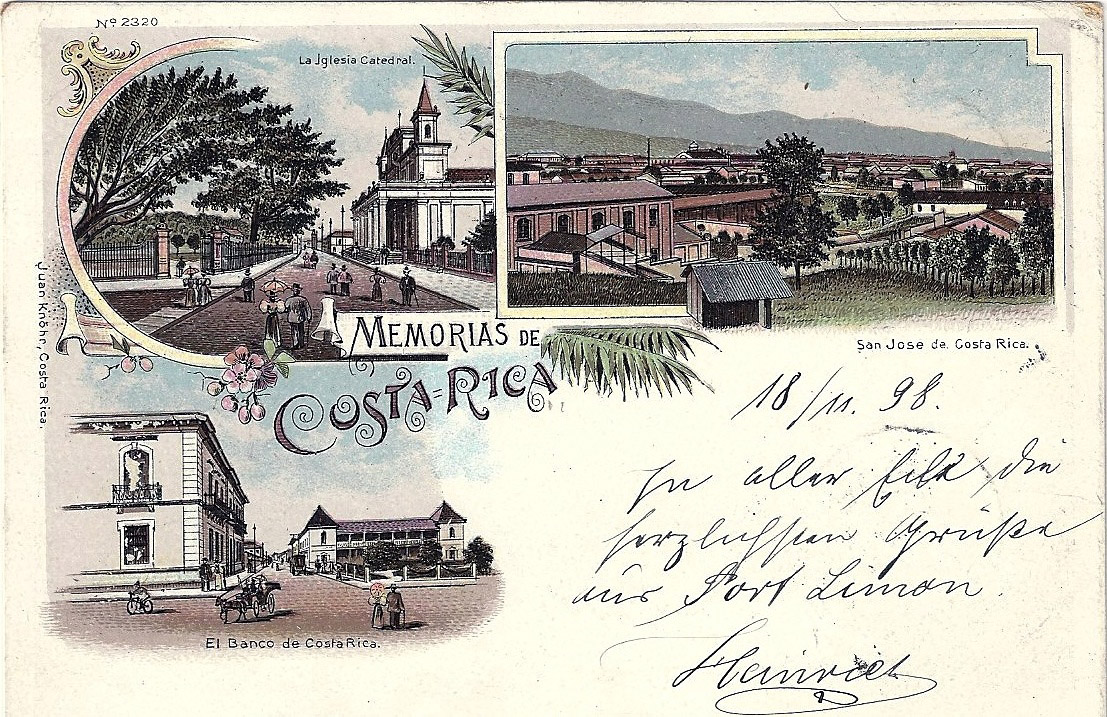 Nº 2320
La Jglesia Catedral.
San Jose de Costa Rica.
MEMORIAS DE
COSTA-RICA
Juan Knöhr, Costa Rica.
El Banco de Costa Rica.
18/11. 98.
In aller Eile die
herzlichsten Grüße
aus Port Limon.
Heinrich